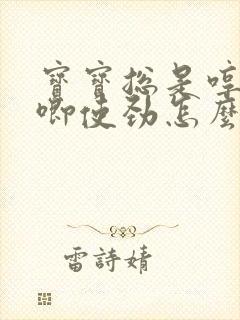 寶寶總是哼
唧使勁怎麼
雷詩婧